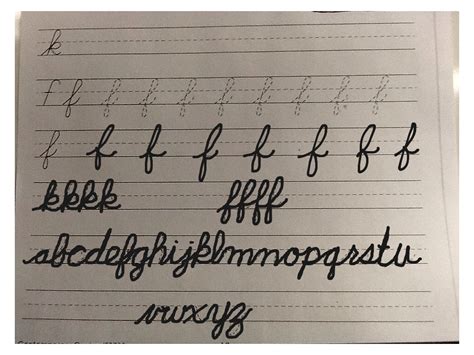 k
f f f f f f f f f f
f f f f f f f f
kkkk ffff
abcdefghijklmnopqrstu
vwxyz